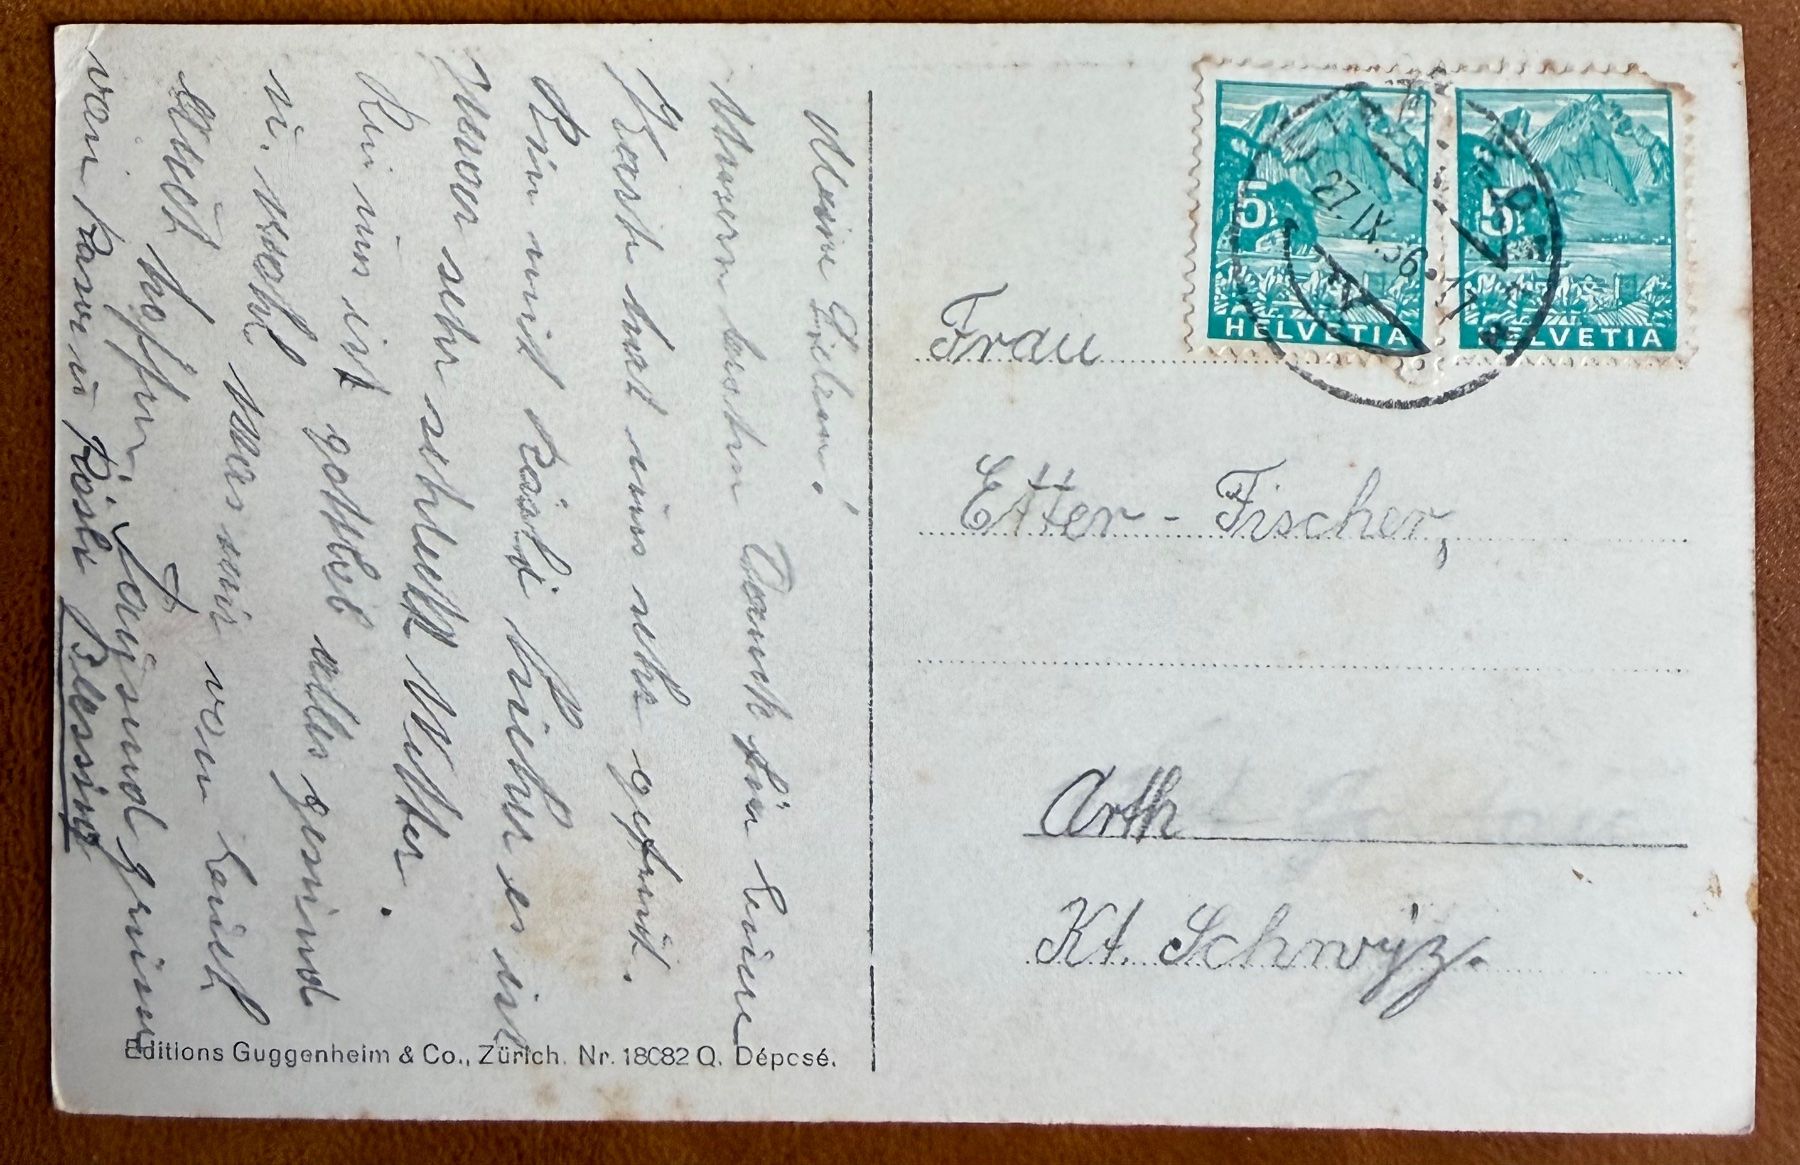 Meine Lieben!
Unsern besten Dank für Eure
Karte hat uns sehr gefreut.
Bin mit Rösli hier es ist
zwar sehr schlecht Wetter.
Bei uns ist gottlob alles gesund
u. wohl was wir von Euch
auch hoffen. Es grüsst
von Rösli Blessing
Editions Guggenheim & Co., Zürich. Nr. 18082 Q. Déposé.
5
HELVETIA
5
HELVETIA
27.IX.36.-11
Frau
Etter-Fischer,
Arth
Kt. Schwyz.